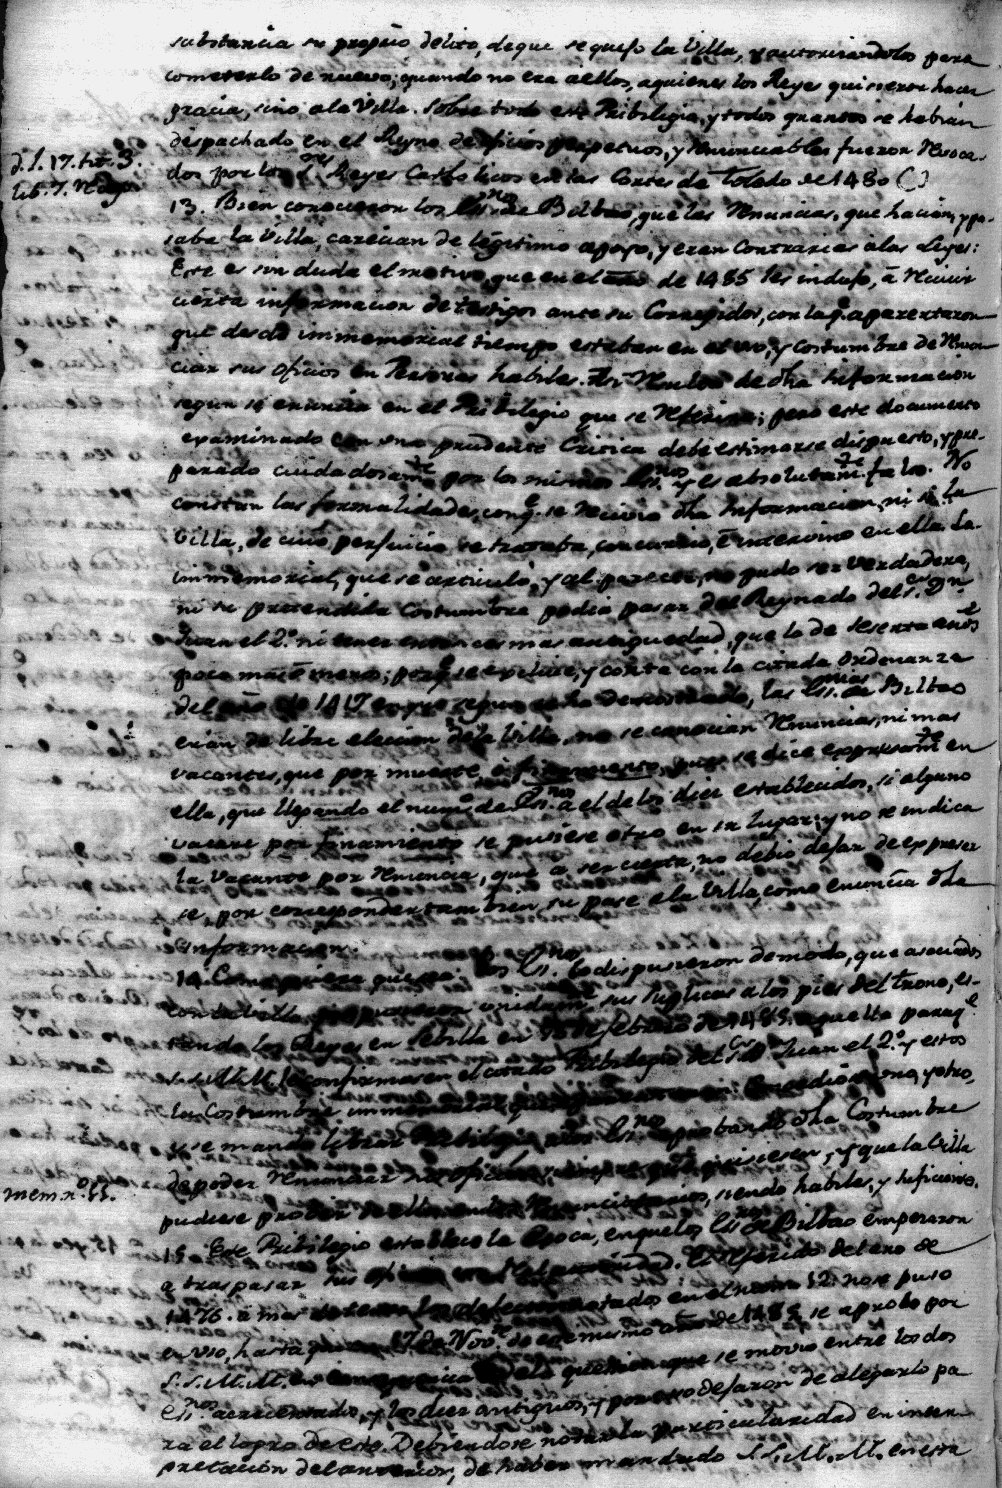 substancia su propio delito, de que se quejo la Villa, y autorizandolos para
cometerlo de nuevo, quando no era aellos, aquienes los Reyes quisieron hacer
gracia, sino ala Villa. Sobre todo este Pribilegio, y todos quantos se habian
despachado en el Reyno de oficios perpetuos, y renunciables fueron revoca-
d. l. 17. tit. 3.
lib. 7. Recop.
dos por los S.res Reyes Catholicos en las Cortes de Toledo de 1480 ( )
13. Bien conocieron los Ess.nos de Bilbao, que las renuncias, que hacian, y pa-
saba la Villa, carecian de legitimo apoyo, y eran contrarias alas Leyes:
Este es sin duda el motivo, que en el año de 1485 les indujo, á recivir
cierta informacion de testigos ante su Corregidor, con la q.e aparentaron
que desde immemorial tiempo estaban en el uso, y costumbre de renun-
ciar sus oficios en Personas habiles. de dha Informacion
segun se enuncia en el Pribilegio que se ; pero este documento
examinado con una prudente Critica debe estimarse dispuesto, y pre-
parado cuidadosam.te por los mismos Ess.nos y es absolutam.te falso. No
constan las formalidades, con q.e se recivio dha Informacion, ni si la
Villa, de cuio perjuicio se trataba, concurrio, é intervino en ella. La
immemorial, que se articuló, y al parecer, no pudo ser verdadera,
ni su pretendida costumbre podia pasar del Reynado del S.or D.n
Juan el 2.º ni tener entonces mas antiguedad, que la de sesenta años
poco mas ó menos; porq.e se evidencie, y consta con la citada ordenanza
del año de 1417 en que segun se ha demostrado, las Ess.nias de Bilbao
eran de libre eleccion dela Villa, no se conocian renuncias, ni mas
vacantes, que por muerte, ó finamiento, pues se dice expresam.te en
ella, que llegando el num.º de Ess.nos a el de los diez establecidos, si alguno
vacare por finamiento se pusiese otro en su lugar: y no se indica
la vacante por renuncia, que á ser cierta, no debio dejar de expresar
se, por corresponder tambien su pase ala Villa, como enuncia dha
Informacion.
14. Como quiera que sea: los Ess.nos lo dispusieron de modo, que asociados
con la Villa sus suplicas a los pies del trono, es-
tando los Reyes en Sebilla en de febrero de 1485 aquella paraq.e
S.S. M.M. le confirmasen el citado Pribilegio del S.or D. Juan el 2.º y estos
la Costumbre immemorial, : Concedióse uno, y otro,
y se mando librar Pribilegio alos Ess.nos aprobando dha Costumbre
de poder renunciar sus oficios, siempre que quisiesen, y que la Villa
mem. n.º 55.
pudiese probeer los Renunciatarios, siendo habiles, y suficientes.
15. Este Pribilegio establece la Epoca, en que los Ess.nos de Bilbao empezaron
a traspasar sus oficios . El referido del año de
1476. á mas defectos notados en el num. 12. no se puso
en uso, hasta que 17 de Nov.re de ese mismo año de 1485 se aprobo por
S.S. M.M. en consequencia dela question que se movio entre los dos
Ess.nos acrecentados, y los diez antiguos, y por esto dejaron de alegarlo pa
ra el logro de este. Debiendose notar la particularidad en inter-
pretacion del anterior, de haber mandado S.S. M.M. en esta